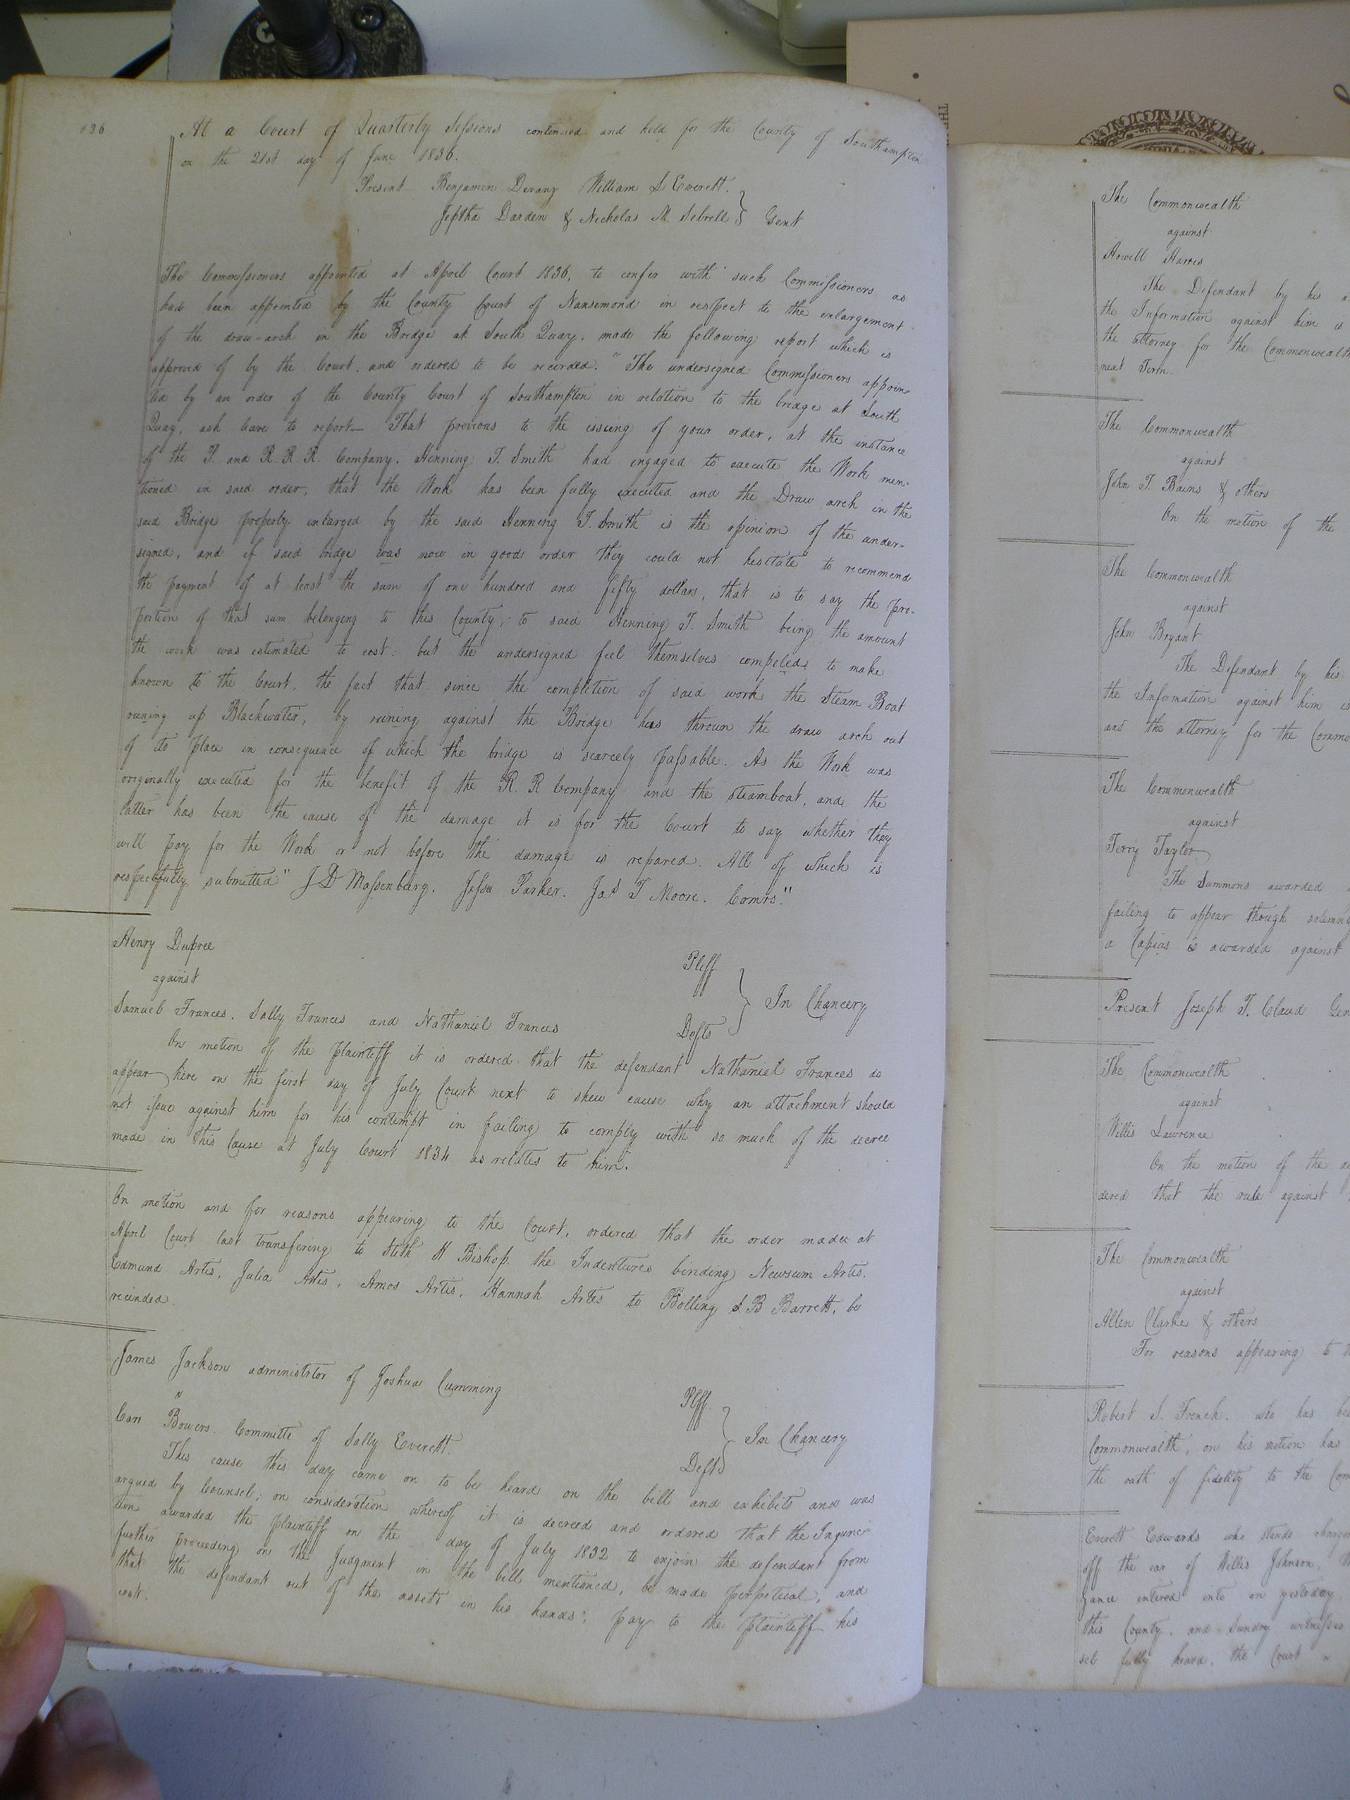 At a Court of Quarterly Sessions continued and held for the County of Southampton
on the 21st day of June 1836.
Present Benjamin Devany William S Everett.
Jeptha Darden & Nicholas M. Sebrell } Gent
The Commissioners appointed at April Court 1836, to confer with such Commissioners as
had been appointed by the County Court of Nansemond in respect to the enlargement
of the draw-arch in the Bridge at South Quay, made the following report which is
approved of by the Court, and ordered to be recorded. "The undersigned Commissioners appoin-
ted by an order of the County Court of Southampton in relation to the bridge at South
Quay, ask leave to report— That previous to the issuing of your order, at the instance
of the P. and R. R. R. Company, Henning T. Smith had engaged to execute the Work men-
tioned in said order, that the Work has been fully executed and the Draw arch in the
said Bridge properly enlarged by the said Henning T. Smith is the opinion of the under-
signed, and if said bridge was now in good order they could not hesitate to recommend
the payment of at least the sum of one hundred and fifty dollars, that is to say the pro-
portion of that sum belonging to this County, to said Henning T. Smith being the amount
the work was estimated to cost. but the undersigned feel themselves compeled to make
known to the Court, the fact that since the completion of said work the Steam Boat
runing up Blackwater, by runing against the Bridge has thrown the draw arch out
of its place in consequence of which the bridge is scarcely passable. As the Work was
originally executed for the benefit of the R. R Company and the steamboat, and the
latter has been the cause of the damage it is for the Court to say whether they
will pay for the Work or not before the damage is repared. All of which is
respectfully submitted" J D Massenburg. Jesse Parker. Jas T Moore. Comrs."
Henry Dupree Pltff
against } In Chancery
Samuel Frances, Sally Frances and Nathaniel Frances Defts
On motion of the plaintiff it is ordered that the defendant Nathaniel Frances do
appear here on the first day of July Court next to shew cause why an attachment should
not issue against him for his contempt in failing to comply with so much of the decree
made in this Cause at July Court 1834 as relates to him.
On motion and for reasons appearing to the Court, ordered that the order made at
April Court last transfering to Stith H Bishop the Indentures binding Newsum Artis,
Edmund Artis, Julia Artis, Amos Artis, Hannah Artis to Bolling S. B Barrett, be
recinded.
James Jackson administrator of Joshua Cumming Pltff.
" } In Chancery
Carr Bowers Committe of Sally Everett. Deft
This cause this day came on to be heard on the bill and exhibits and was
argued by Counsel; on consideration whereof it is decreed and ordered that the Injunc-
tion awarded the plaintiff on the day of July 1832 to enjoin the defendant from
further proceeding on the Judgment in the bill mentioned, be made perpetual, and
that the defendant out of the assets in his hands, pay to the plaintiff his
cost.
The Commonwealth
against
Howell Harris
The Defendant by his
the Information against him is
the attorney for the Commonwealth
next Term.
The Commonwealth
against
John T. Bains & others
On the motion of the
The Commonwealth
against
John Bryant
The Defendant by his
the Information against him is
and the attorney for the Common
The Commonwealth
against
Terry Taylor
The Summons awarded
failing to appear though solemnly
a Capias is awarded against
Present Joseph T. Claud Gen
The Commonwealth
against
Willis Lawrence
On the motion of the
dered that the rule against
The Commonwealth
against
Allen Clarke & others
For reasons appearing to
Robert S. French, who has be
Commonwealth, on his motion has
the oath of fidelity to the Com
Everett Edwards who stands charged
off the ear of Willis Johnson,
zance entered into on yesterday
this County, and Sundry witnesses
self fully heard, the Court